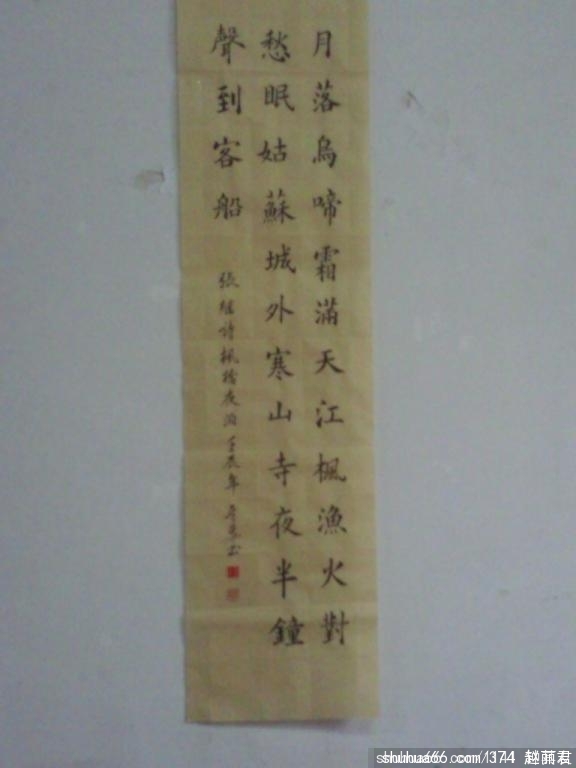 月落烏啼霜滿天江楓漁火對
愁眠姑蘇城外寒山寺夜半鐘
聲到客船
張繼詩楓橋夜泊壬辰年
shuhua666.com/1374 赵萳君